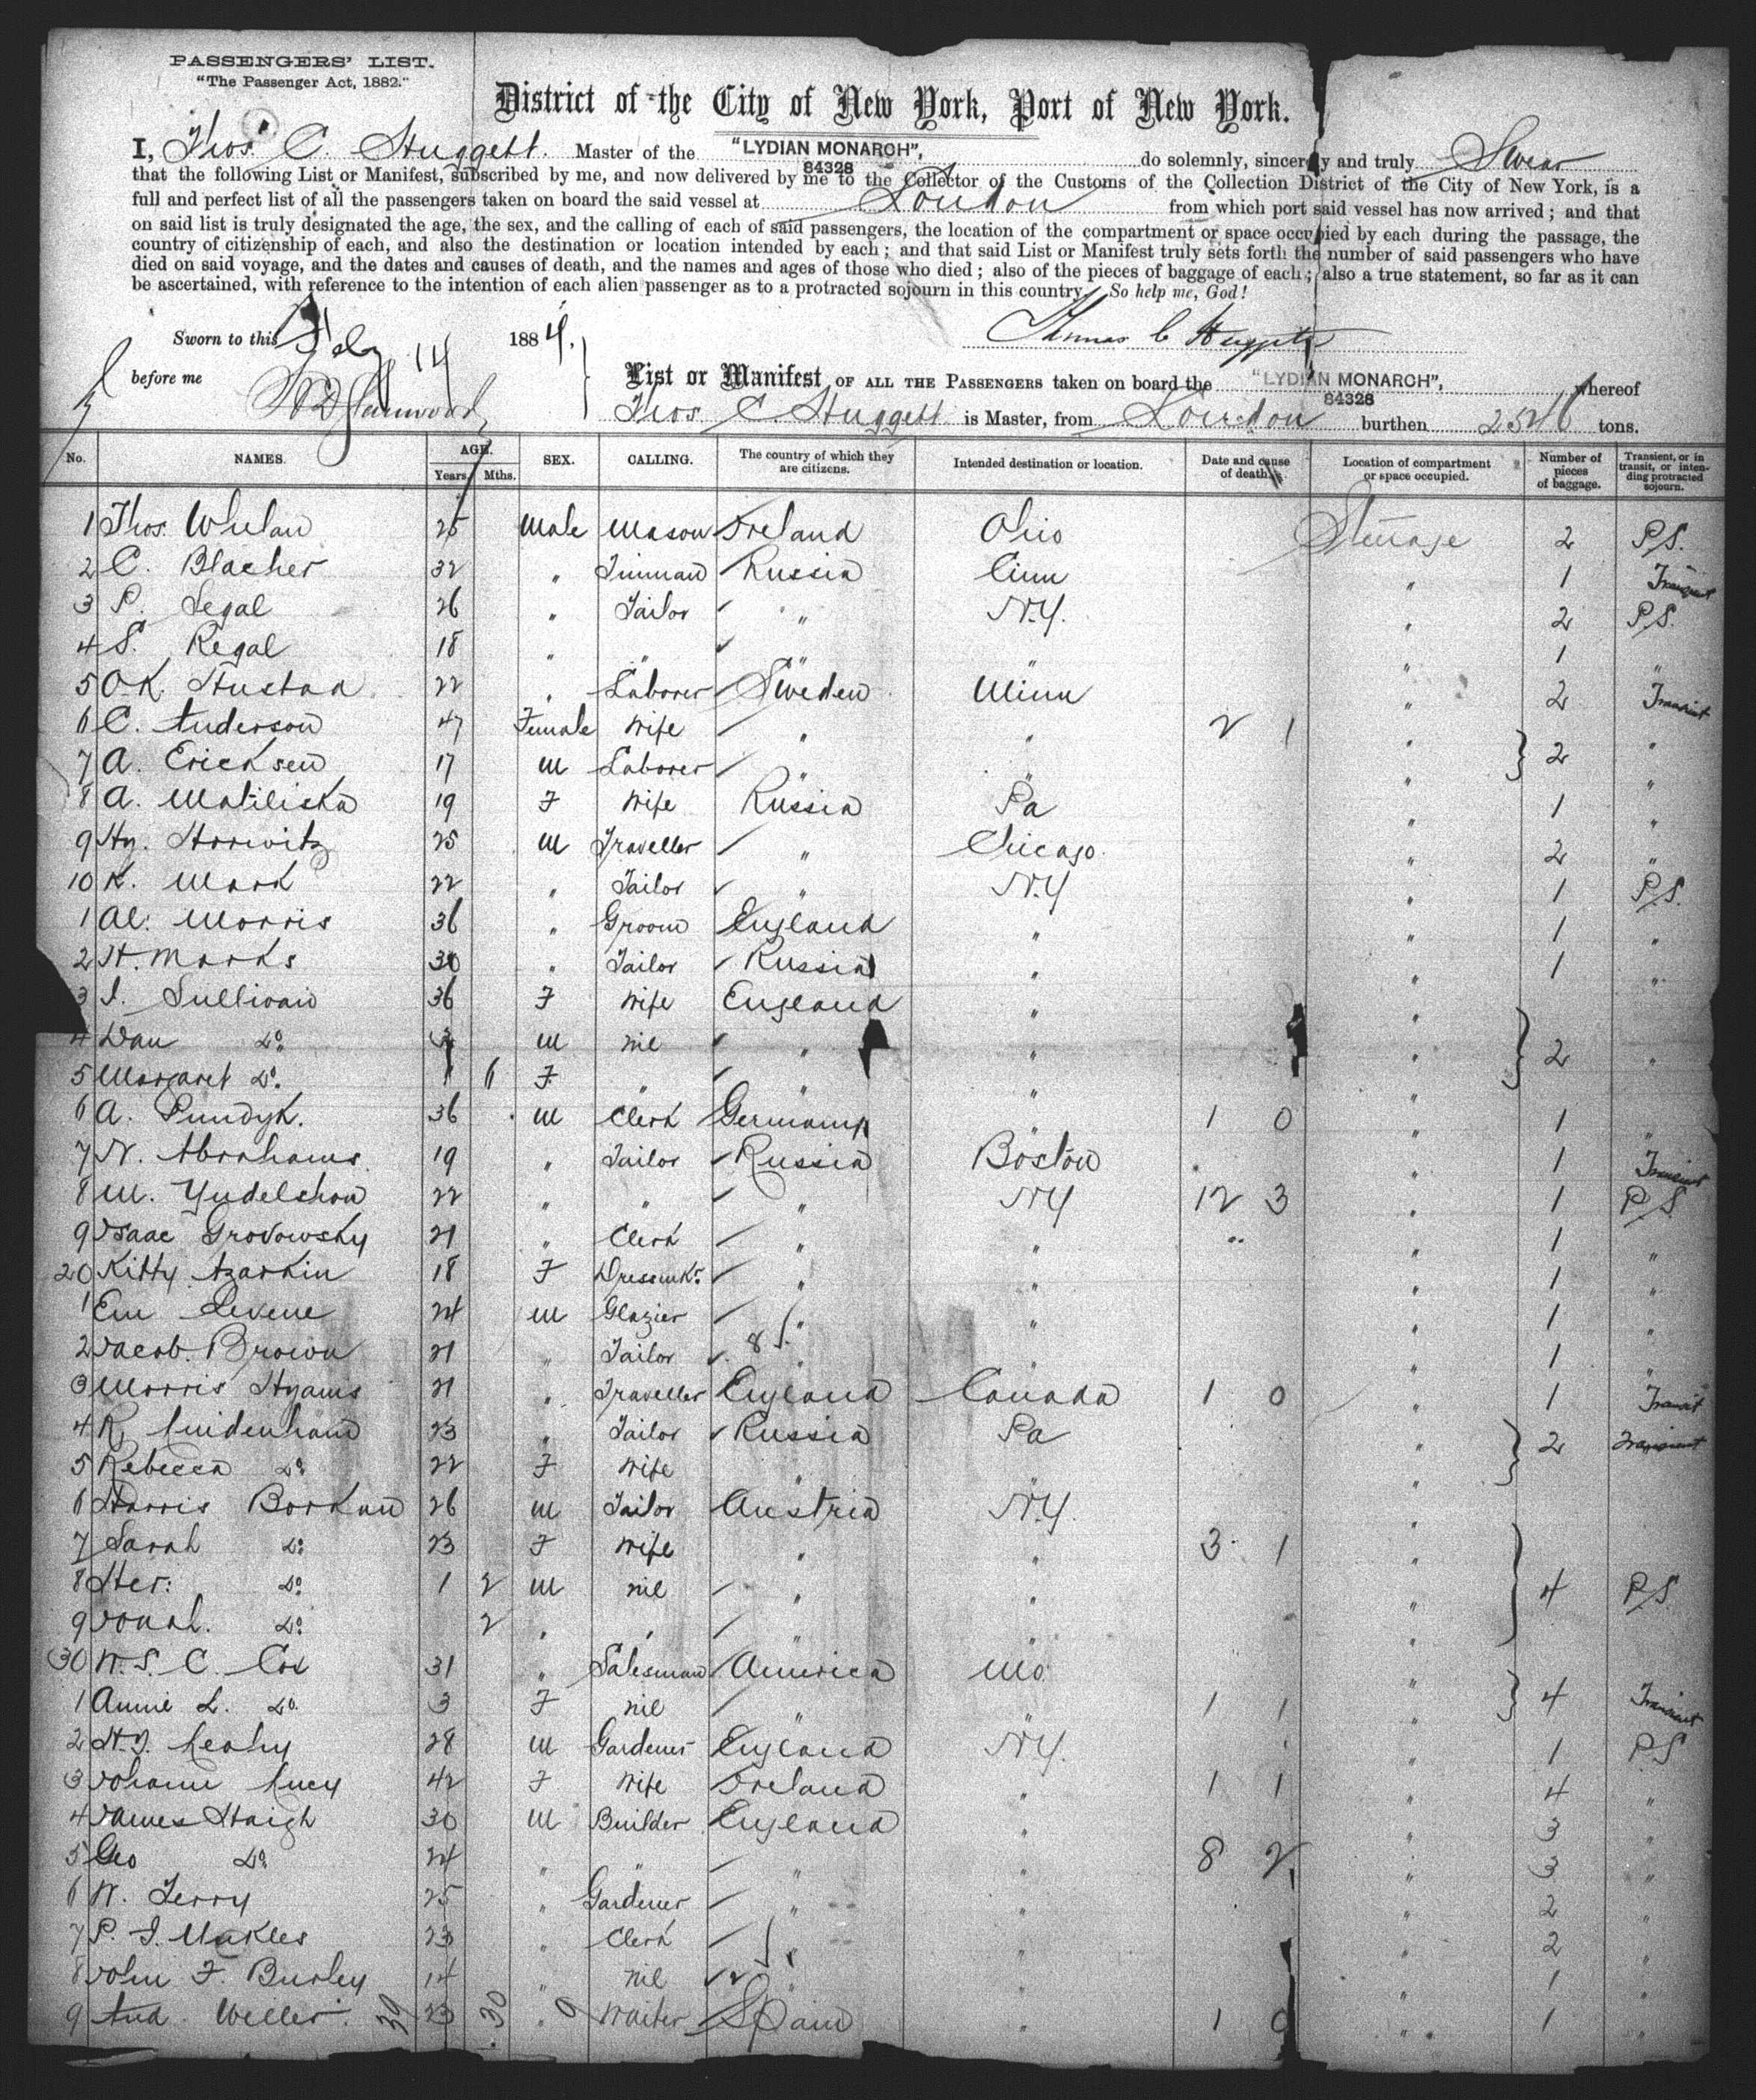 PASSENGERS' LIST.
"The Passenger Act, 1882."
District of the City of New York, Port of New York.
I, Thos. C. Huggett. Master of the "LYDIAN MONARCH", 84328 do solemnly, sincerely and truly Swear
that the following List or Manifest, subscribed by me, and now delivered by me to the Collector of the Customs of the Collection District of the City of New York, is a
full and perfect list of all the passengers taken on board the said vessel at London from which port said vessel has now arrived; and that
on said list is truly designated the age, the sex, and the calling of each of said passengers, the location of the compartment or space occupied by each during the passage, the
country of citizenship of each, and also the destination or location intended by each; and that said List or Manifest truly sets forth the number of said passengers who have
died on said voyage, and the dates and causes of death, and the names and ages of those who died; also of the pieces of baggage of each; also a true statement, so far as it can
be ascertained, with reference to the intention of each alien passenger as to a protracted sojourn in this country. So help me, God!
Sworn to this Feby 14 1884.
Thomas C Huggett
before me
List or Manifest OF ALL THE PASSENGERS taken on board the "LYDIAN MONARCH", 84328 whereof
Thos. C. Huggett is Master, from London burthen 2546 tons.
No. NAMES. AGE. Years. Mths. SEX. CALLING. The country of which they are citizens. Intended destination or location. Date and cause of death. Location of compartment or space occupied. Number of pieces of baggage. Transient, or in transit, or intending protracted sojourn.
1 Thos. Whelan 25 Male Mason Ireland Ohio Steerage 2 P.S.
2 C. Blacher 32 " Tinman Russia Cinn " 1 Transient
3 P. Segal 26 " Tailor " N.Y. " 2 P.S.
4 S. Regal 18 " " " " " 1 "
5 O.K. Hustad 22 " Laborer Sweden Minn " 2 Transient
6 C. Anderson 47 Female Wife " " 2 1 " "
7 A. Ericksen 17 M Laborer " " " 2 "
8 A. Matiliska 19 F Wife Russia Pa " 1 "
9 Hy. Horwitz 25 M Traveller " Chicago. " 2 "
10 K. Mark 22 " Tailor " N.Y " 1 P.S.
1 Al. Morris 36 " Groom England " " 1 "
2 H. Marks 30 " Tailor Russia " " 1 "
3 J. Sullivan 36 F Wife England " "
4 Dan Do. M nil " " " 2 "
5 Margaret Do. 1 6 F " " " "
6 A. Pundyk. 36 M Clerk Germany " 1 0 " 1 "
7 N. Abrahams 19 " Tailor Russia Boston " 1 Transient
8 M. Yudelshon 22 " " " N.Y 12 3 " 1 P.S.
9 Isaac Grodowsky 21 " Clerk " " " 1 "
20 Kitty Azarkin 18 F Dressmkr. " " " 1 "
1 Em Levene 24 M Glazier " " " 1 "
2 Jacob. Brown 21 " Tailor 8 " " " 1 "
3 Morris Hyams 21 " Traveller England Canada 1 0 " 1 Transit
4 R. 23 " Tailor Russia Pa " 2 Transient
5 Rebecca Do. 22 F Wife " " "
6 Harris Borkan 26 M Tailor Austria N.Y. "
7 Sarah Do. 23 F Wife " " 3 1 "
8 Do. 1 2 M nil " " " 4 P.S.
9 Jonah. Do. 2 " " " " "
30 W.S. C. Cox 31 " Salesman America Mo. "
1 Annie L. Do. 3 F nil " " 1 1 " 4 Transient
2 28 M Gardener England N.Y. " 1 P.S
3 Johann Lucy 42 F Wife Ireland " 1 1 " 4 "
4 James Haigh 30 M Builder England " " 3 "
5 Geo Do. 24 " " " " 8 2 " 3 "
6 W. Terry 25 " Gardener " " " 2 "
7 P. J. Makles 23 " Clerk " " " 2 "
8 John F. Burley 14 " nil 2 " " " 1 "
9 And. Weller. 39 23 30 " 9 Waiter Spain " 1 0 " 1 "